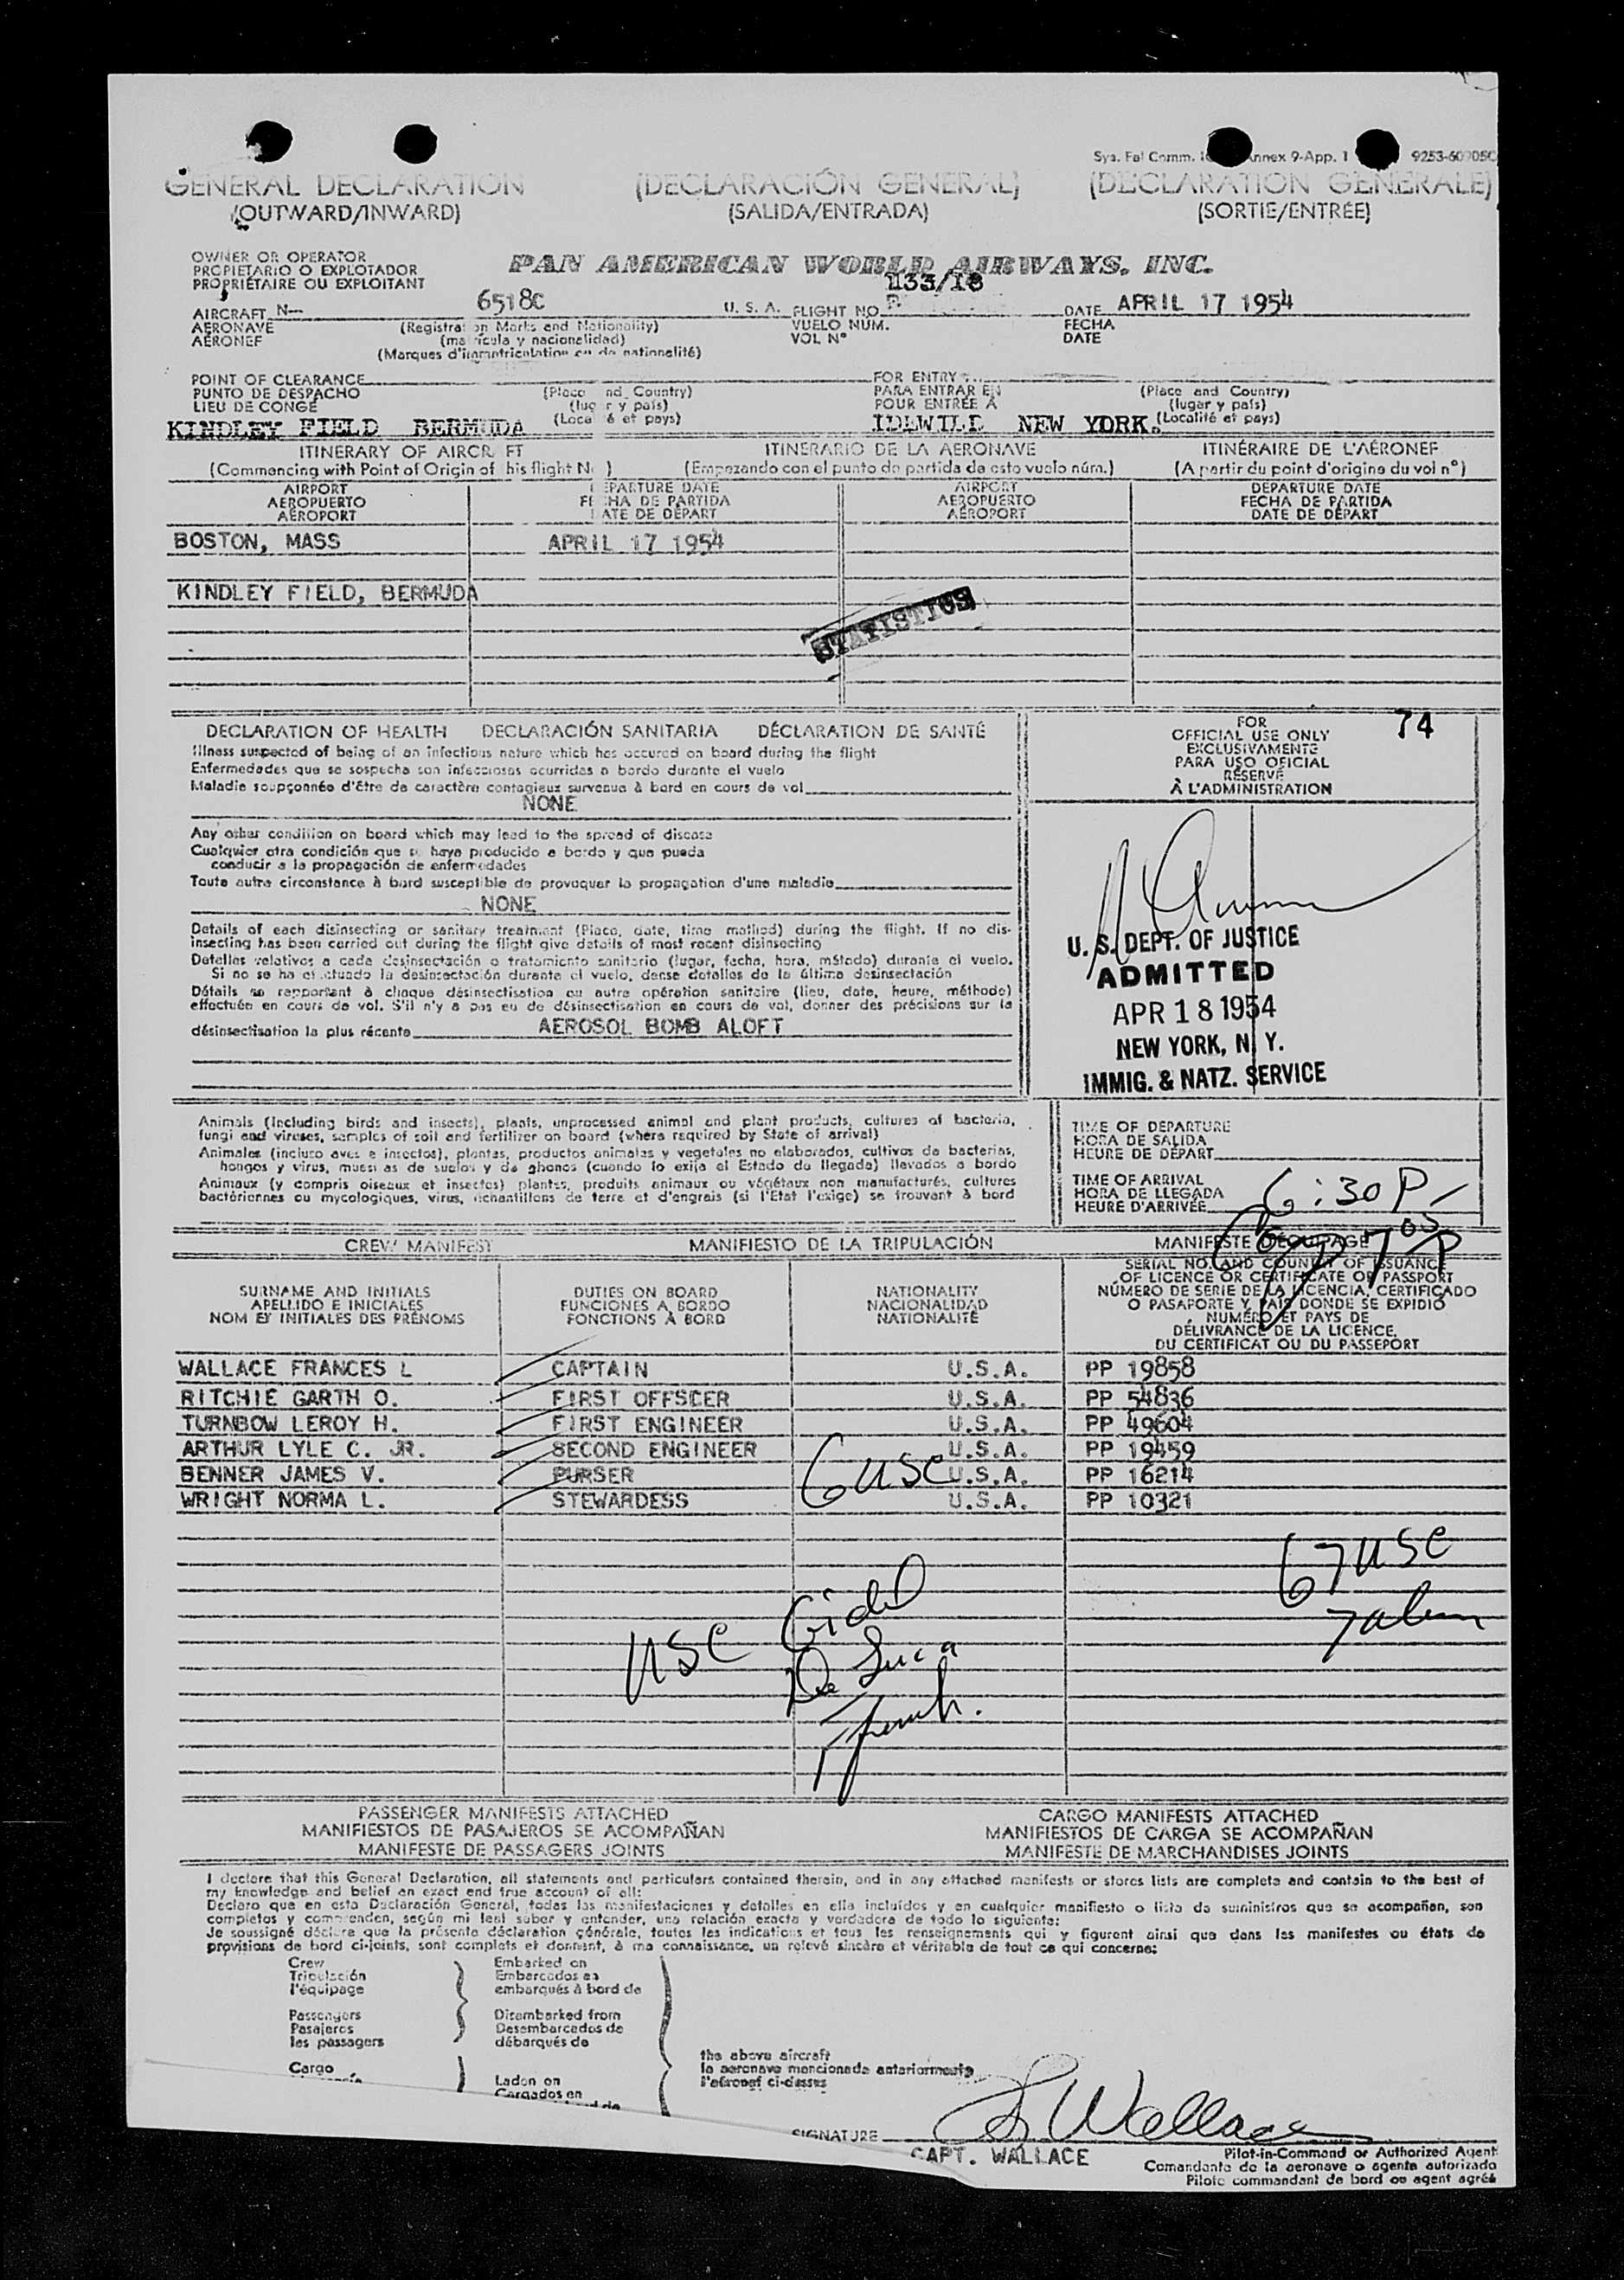 Sys. Fal Comm. Annex 9-App. 1 9253-60705C
GENERAL DECLARATION (DECLARACIÓN GENERAL) (DECLARATION GENERALE)
(OUTWARD/INWARD) (SALIDA/ENTRADA) (SORTIE/ENTRÉE)
OWNER OR OPERATOR
PROPIETARIO O EXPLOTADOR
PROPRIÉTAIRE OU EXPLOITANT
PAN AMERICAN WORLD AIRWAYS, INC.
AIRCRAFT N— 6518C U. S. A. FLIGHT NO. 133/18 DATE APRIL 17 1954
AERONAVE (Registration Marks and Nationality) VUELO NUM. FECHA
AÉRONEF (matrícula y nacionalidad) VOL N° DATE
(Marques d'immatriculation et de nationalité)
POINT OF CLEARANCE FOR ENTRY
PUNTO DE DESPACHO (Place and Country) PARA ENTRAR EN (Place and Country)
LIEU DE CONGÉ (lugar y país) POUR ENTRÉE À (lugar y país)
KINDLEY FIELD BERMUDA (Localité et pays) IDLWILD NEW YORK. (Localité et pays)
ITINERARY OF AIRCRAFT ITINERARIO DE LA AERONAVE ITINÉRAIRE DE L'AÉRONEF
(Commencing with Point of Origin of this flight No.) (Empezando con el punto de partida de esto vuelo núm.) (A partir du point d'origine du vol n°)
AIRPORT DEPARTURE DATE AIRPORT DEPARTURE DATE
AEROPUERTO FECHA DE PARTIDA AEROPUERTO FECHA DE PARTIDA
AÉROPORT DATE DE DÉPART AÉROPORT DATE DE DÉPART
BOSTON, MASS APRIL 17 1954
KINDLEY FIELD, BERMUDA
STATISTICS
DECLARATION OF HEALTH DECLARACIÓN SANITARIA DÉCLARATION DE SANTÉ
Illness suspected of being of an infectious nature which has occured on board during the flight
Enfermedades que se sospecha son infecciosas ocurridas a bordo durante el vuelo
Maladie soupçonnée d'être de caractère contagieux survenue à bord en cours de vol
NONE
Any other condition on board which may lead to the spread of disease
Cualquier otra condición que se haya producido a bordo y que pueda
conducir a la propagación de enfermedades
Toute autre circonstance à bord susceptible de provoquer la propagation d'une maladie
NONE
Details of each disinsecting or sanitary treatment (Place, date, time method) during the flight. If no dis-
insecting has been carried out during the flight give details of most recent disinsecting
Detalles relativos a cada desinsectación o tratamiento sanitario (lugar, fecha, hora, método) durante el vuelo.
Si no se ha efectuado la desinsectación durante el vuelo, dense detalles de la última desinsectación
Détails se rapportant à chaque désinsectisation ou autre opération sanitaire (lieu, date, heure, méthode)
effectuée en cours de vol. S'il n'y a pas eu de désinsectisation en cours de vol, donner des précisions sur la
désinsectisation la plus récente AEROSOL BOMB ALOFT
FOR 74
OFFICIAL USE ONLY
EXCLUSIVAMENTE
PARA USO OFICIAL
RÉSERVÉ
À L'ADMINISTRATION
U. S. DEPT. OF JUSTICE
ADMITTED
APR 18 1954
NEW YORK, N. Y.
IMMIG. & NATZ. SERVICE
Animals (Including birds and insects), plants, unprocessed animal and plant products, cultures of bacteria,
fungi and viruses, samples of soil and fertilizer on board (where required by State of arrival)
Animales (incluso aves e insectos), plantas, productos animales y vegetales no elaborados, cultivos de bacterias,
hongos y virus, muestras de suelos y de abonos (cuando lo exija el Estado de llegada) llevados a bordo
Animaux (y compris oiseaux et insectes) plantes, produits animaux ou végétaux non manufacturés, cultures
bactériennes ou mycologiques, virus, échantillons de terre et d'engrais (si l'État l'exige) se trouvant à bord
TIME OF DEPARTURE
HORA DE SALIDA
HEURE DE DÉPART
TIME OF ARRIVAL
HORA DE LLEGADA 6:30 P
HEURE D'ARRIVÉE
7 05 P
CREW MANIFEST MANIFIESTO DE LA TRIPULACIÓN MANIFESTE D'ÉQUIPAGE
SURNAME AND INITIALS DUTIES ON BOARD NATIONALITY
APELLIDO E INICIALES FUNCIONES A BORDO NACIONALIDAD
NOM ET INITIALES DES PRÉNOMS FONCTIONS À BORD NATIONALITÉ
SERIAL NO. AND COUNTRY OF ISSUANCE
OF LICENCE OR CERTIFICATE OR PASSPORT
NÚMERO DE SERIE DE LA LICENCIA, CERTIFICADO
O PASAPORTE Y PAIS DONDE SE EXPIDIÓ
NUMÉRO ET PAYS DE
DÉLIVRANCE DE LA LICENCE,
DU CERTIFICAT OU DU PASSEPORT
WALLACE FRANCES L CAPTAIN U.S.A. PP 19858
RITCHIE GARTH O. FIRST OFFSCER U.S.A. PP 54836
TURNBOW LEROY H. FIRST ENGINEER U.S.A. PP 49604
ARTHUR LYLE C. JR. SECOND ENGINEER U.S.A. PP 19459
BENNER JAMES V. PURSER U.S.A. PP 16214
WRIGHT NORMA L. STEWARDESS U.S.A. PP 10321
6 USC
67 USC
USC
De Luca
PASSENGER MANIFESTS ATTACHED CARGO MANIFESTS ATTACHED
MANIFIESTOS DE PASAJEROS SE ACOMPAÑAN MANIFIESTOS DE CARGA SE ACOMPAÑAN
MANIFESTE DE PASSAGERS JOINTS MANIFESTE DE MARCHANDISES JOINTS
I declare that this General Declaration, all statements and particulars contained therein, and in any attached manifests or stores lists are complete and contain to the best of
my knowledge and belief an exact end true account of all:
Declaro que en esta Declaración General, todas las manifestaciones y detalles en ella incluídos y en cualquier manifiesto o lista de suministros que se acompañan, son
completos y comprenden, según mi leal saber y entender, una relación exacta y verdadera de todo lo siguiente:
Je soussigné déclare que la présente déclaration générale, toutes les indications et tous les renseignements qui y figurent ainsi que dans les manifestes ou états de
provisions de bord ci-joints, sont complets et donnent, à ma connaissance, un relevé sincère et véritable de tout ce qui concerne:
Crew Embarked on
Tripulación Embarcados en
l'équipage embarqués à bord de
Passengers Disembarked from
Pasajeros Desembarcados de
les passagers débarqués de
Cargo Laden on
Cargados en
the above aircraft
la aeronave mencionada anteriormente
l'aéronef ci-dessus
SIGNATURE Wallace
CAPT. WALLACE Pilot-in-Command or Authorized Agent
Comandante de la aeronave o agente autorizado
Pilote commandant de bord ou agent agréé